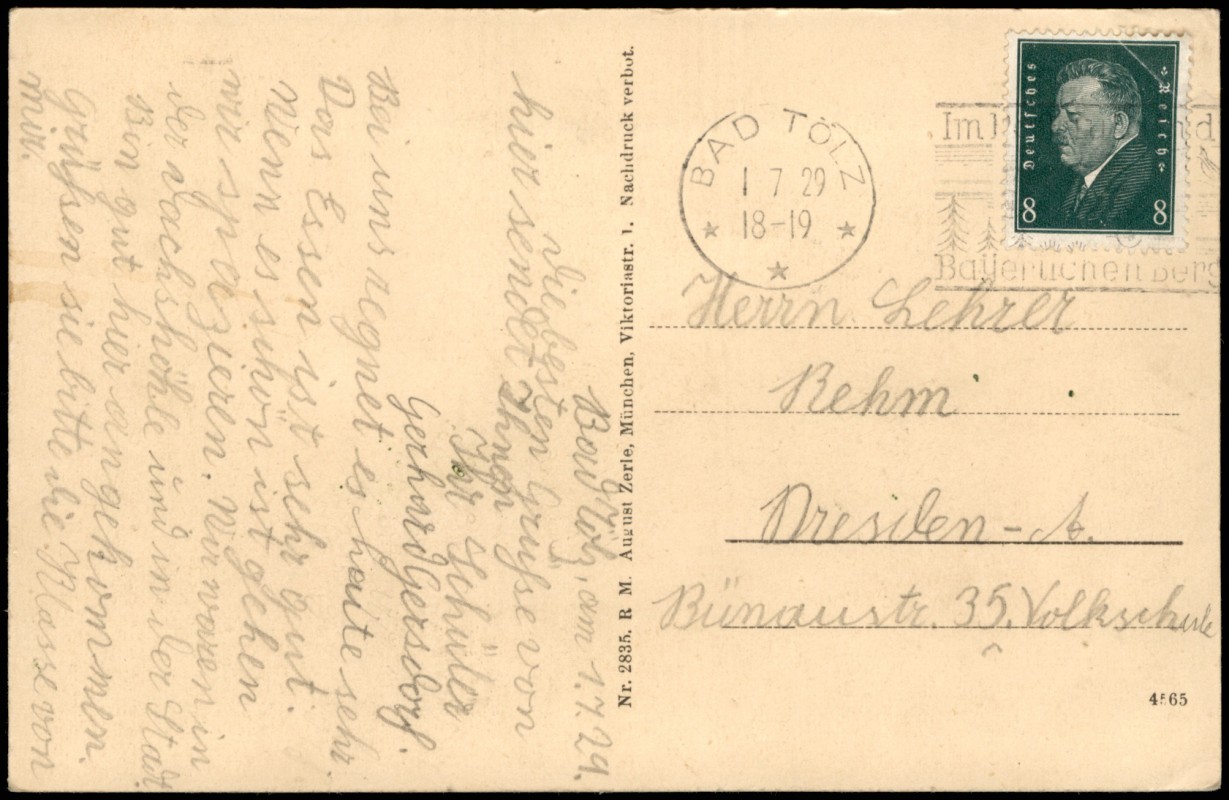 Bad Tölz, am 1.7.29.
Die besten Grüsse von
hier sendet Ihnen
Ihr Schüler
Gerhard Gersdorf.
Bei uns regnet es haite sehr
Das Essen ist sehr gut.
Wenn es schön ist gehen
wir spazieren. Wir waren in
der Dachshöhle und in der Stadt
Bin gut hier angekommen.
Grüßen sie bitte die Klasse von
mir.
Nr. 2835. R M. August Zerle, München, Viktoriastr. 1. Nachdruck verbot.
BAD TÖLZ
1 7 29
18-19
Im
Bayerischen Berg
Deutsches Reich
8 8
Herrn Lehrer
Rehm
Dresden-A.
Bünaustr. 35. Volkschule
4565